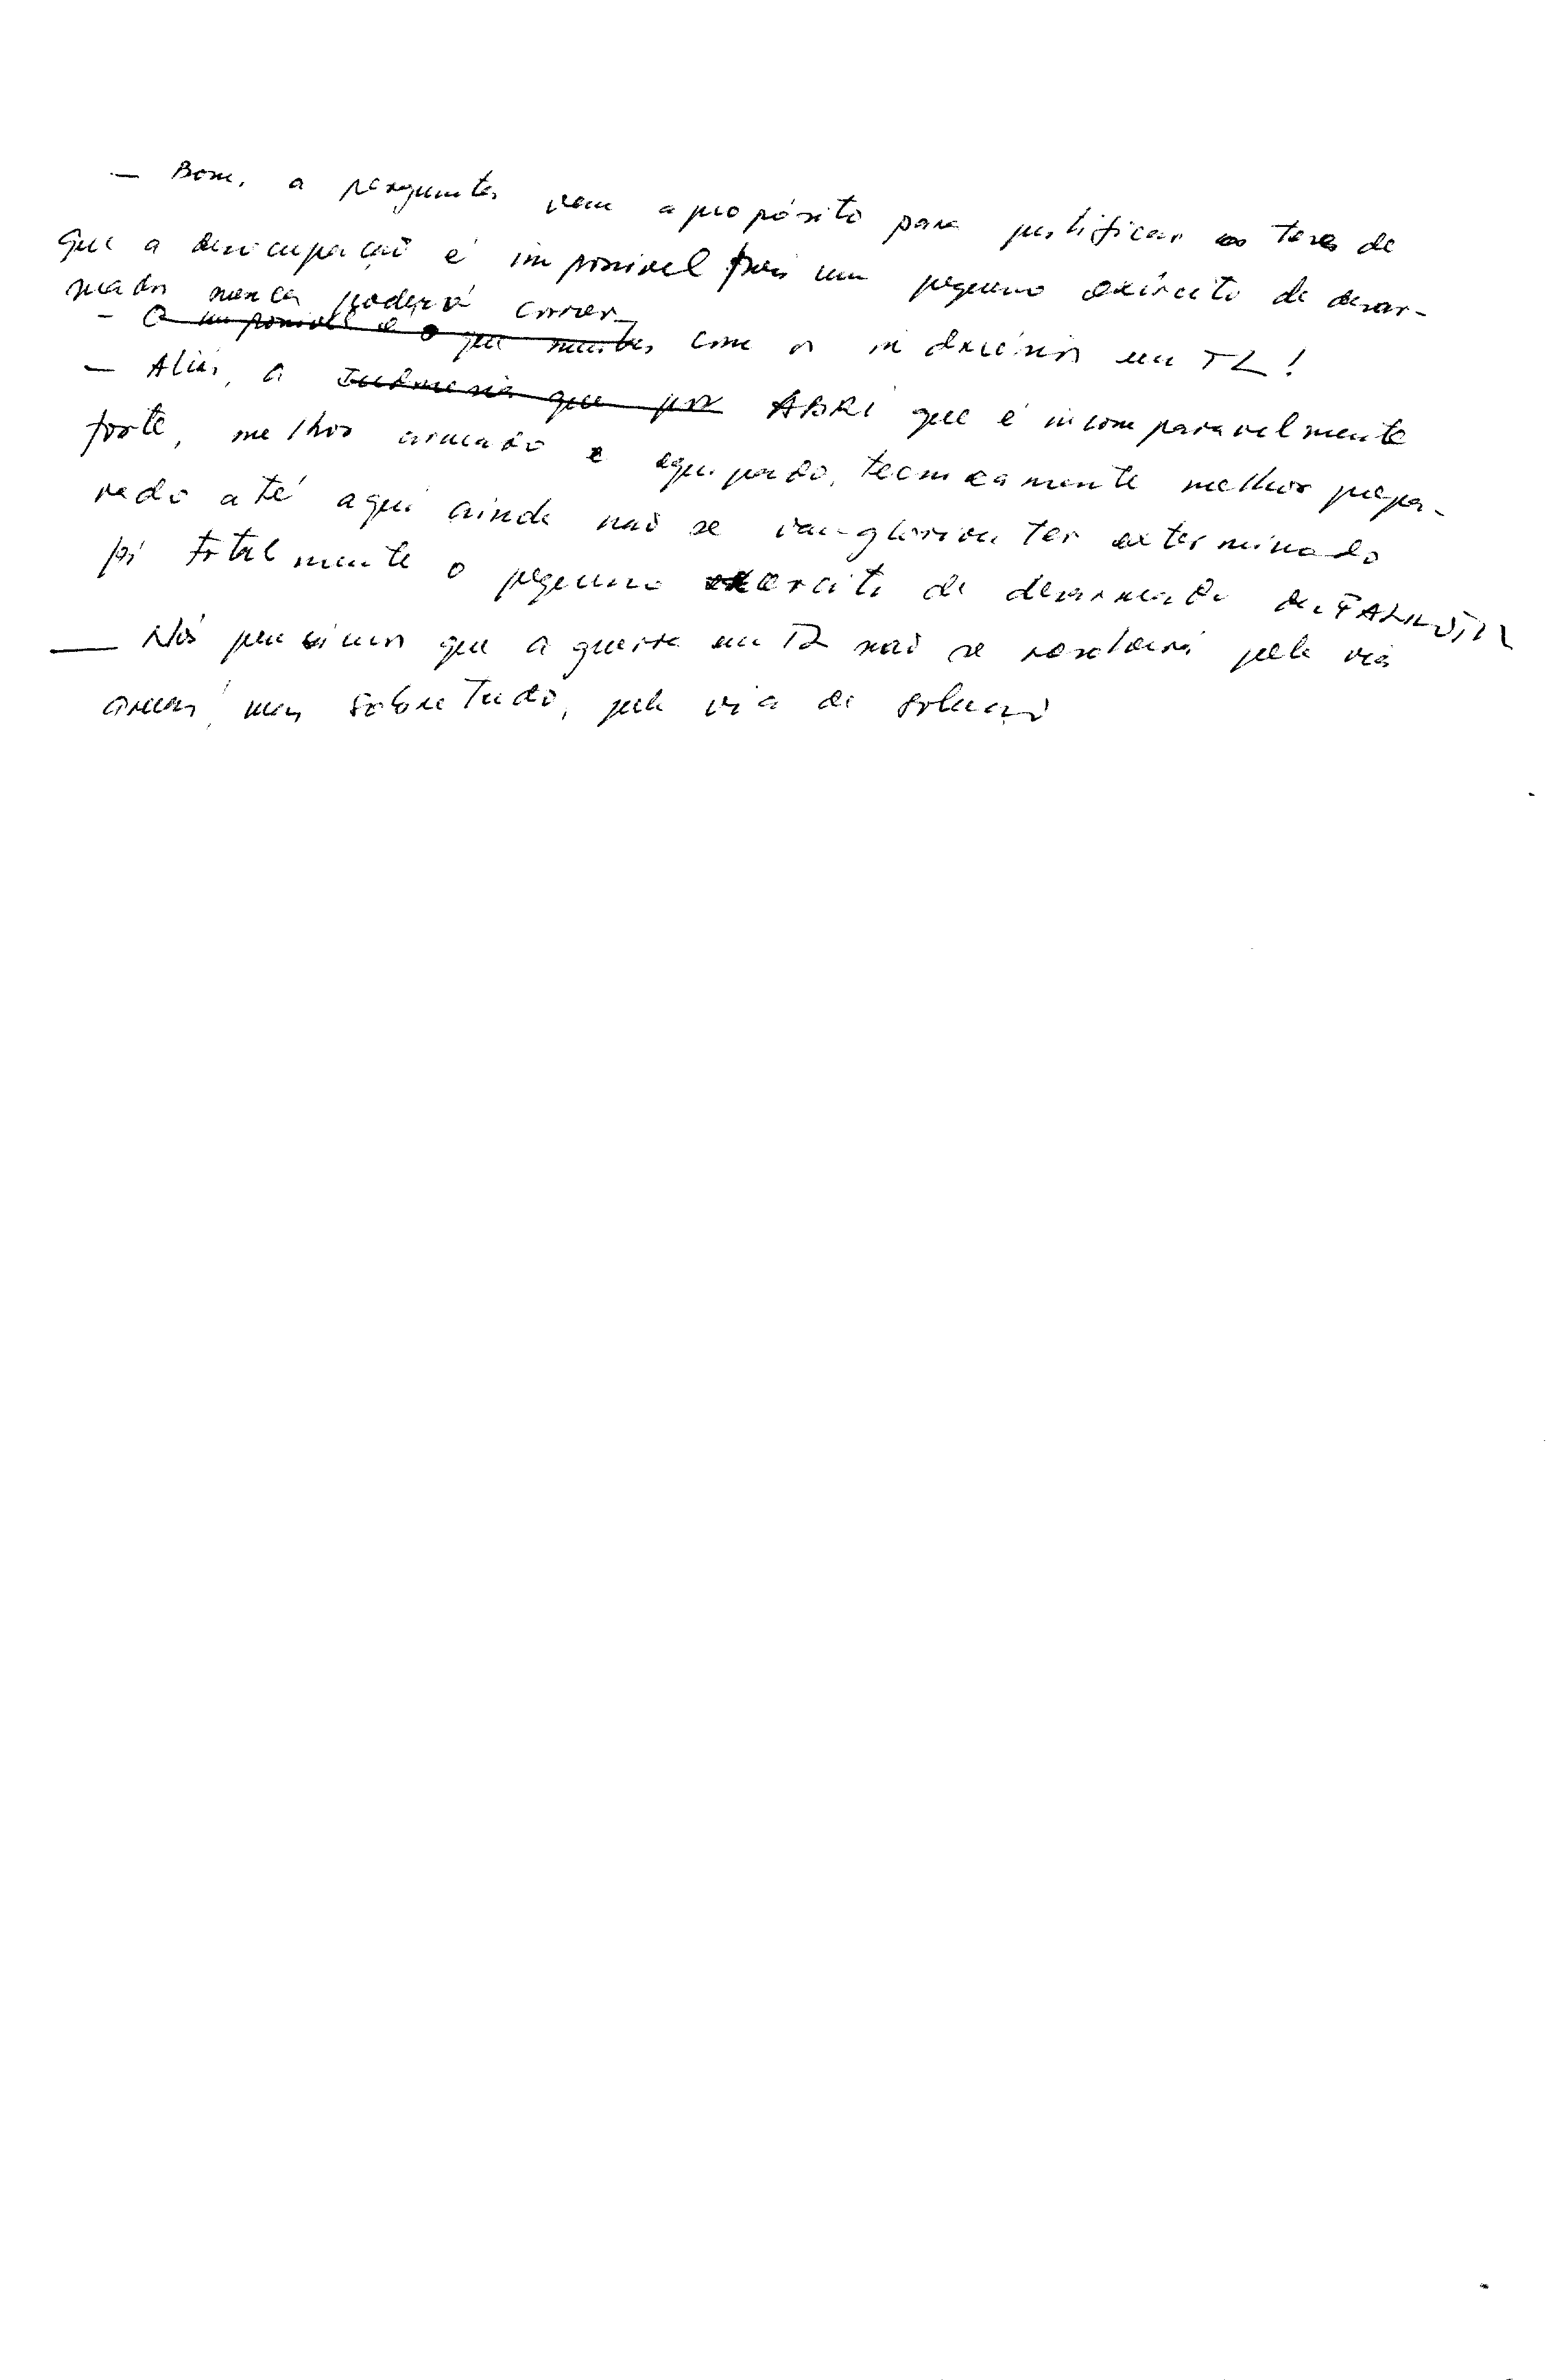 — Bom, a pergunta vem a propósito para justificar as teses de
que a desocupação é impossível pois um pequeno exército de desar-
mados nunca poderá correr
- O impossivel é o que muitos com os indonésios em TL!
— Aliás, a Indonesia que por ABRI que é incomparavelmente
forte, melhor armado e equipado, tecnicamente melhor prepa-
rado até aqui ainda não se vangloriou ter exterminado
totalmente o pequeno exercito de desarmado das FALINTIL
— Nós pensamos que a guerra em TL não se resolverá pela via
armas, mas sobretudo, pela via de solução